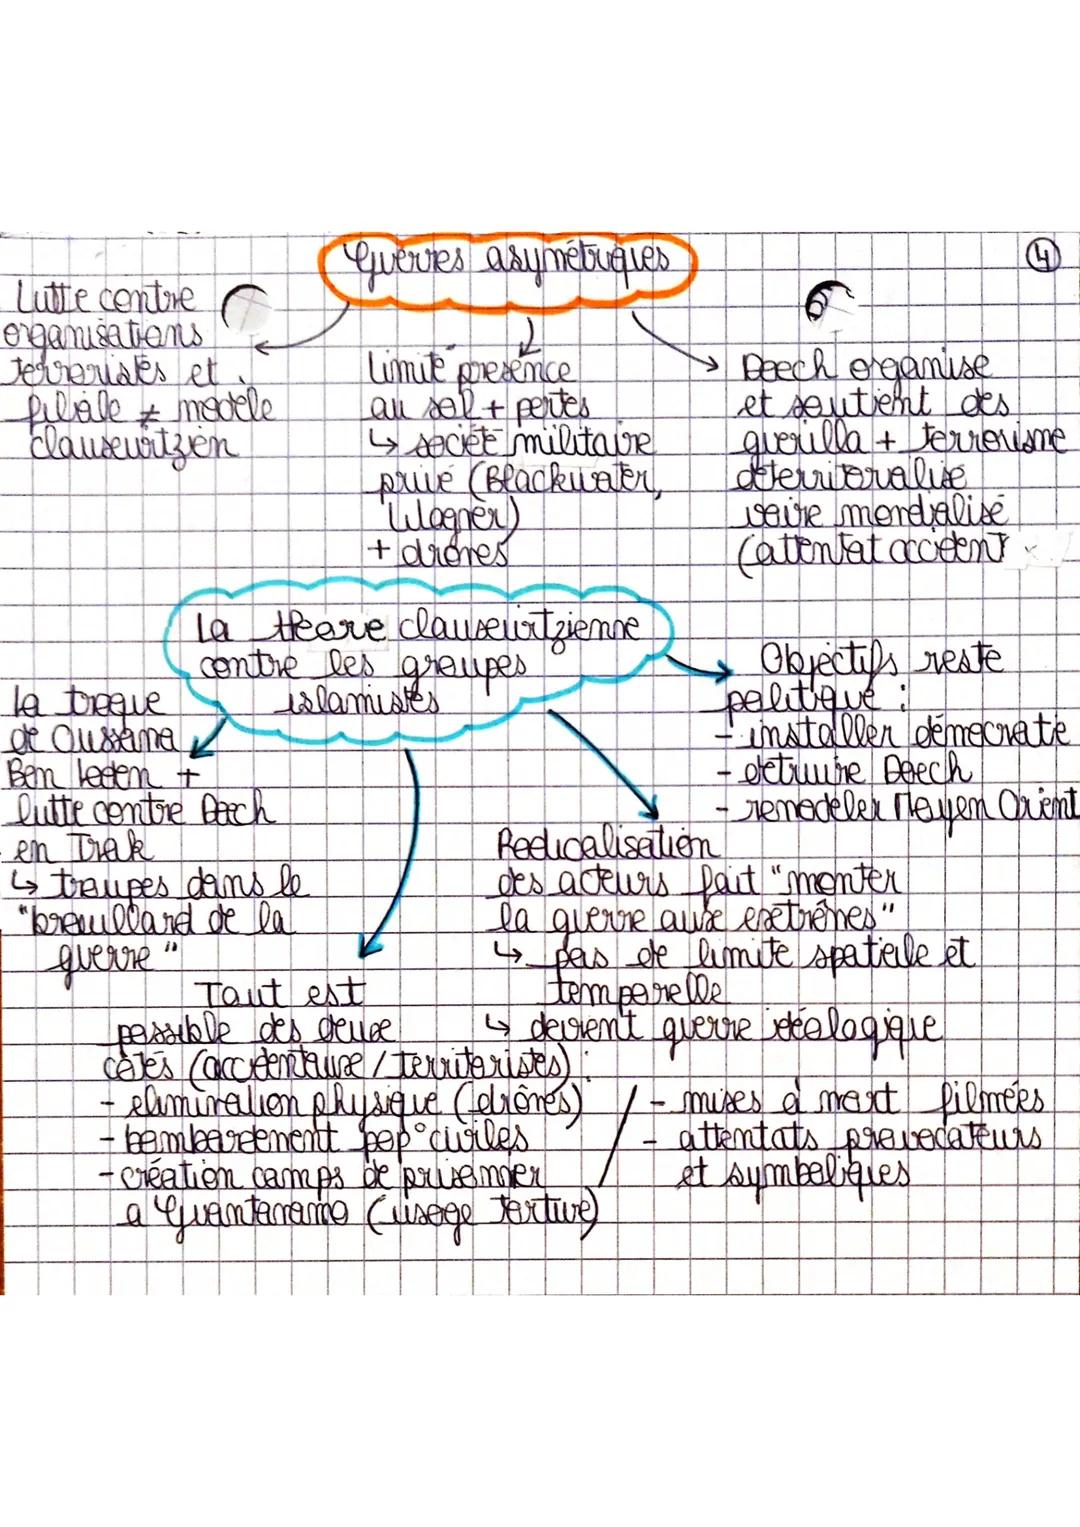 Guerres asymétriques
4
Lutte contre
organisations
terroristes et
filiale ≠ modèle
clauseuitzien
Limite présence
au sol + pertes
↳ société militaire
privé (Blackwater,
Wagner)
+ drônes
Daech organise
et soutient des
guerilla + terrorisme
déterritoralisé
voire mondialisé
(attentat occident
La théorie clauseuitzienne
contre les groupes
islamistes
la traque
de Oussama
Ben laden +
lutte contre Daech
en Irak
↳ troupes dans le
"brouillard de la
guerre"
Objectifs reste
politique :
- installer démocratie
- détruire Daech
- remodeler Moyen Orient
Radicalisation
des acteurs fait "monter
la guerre aux extrêmes"
↳ pas de limite spatiale et
temporelle
↳ devient guerre idéologique
Tout est
possible des deux
côtés (occidentaux / territoristes) :
- élimination physique (drônes)
- bombardement pop° civiles
- création camps de prisonnier
a Guantanamo (usage torture)
/
- mises à mort filmées
- attentats provocateurs
et symboliques